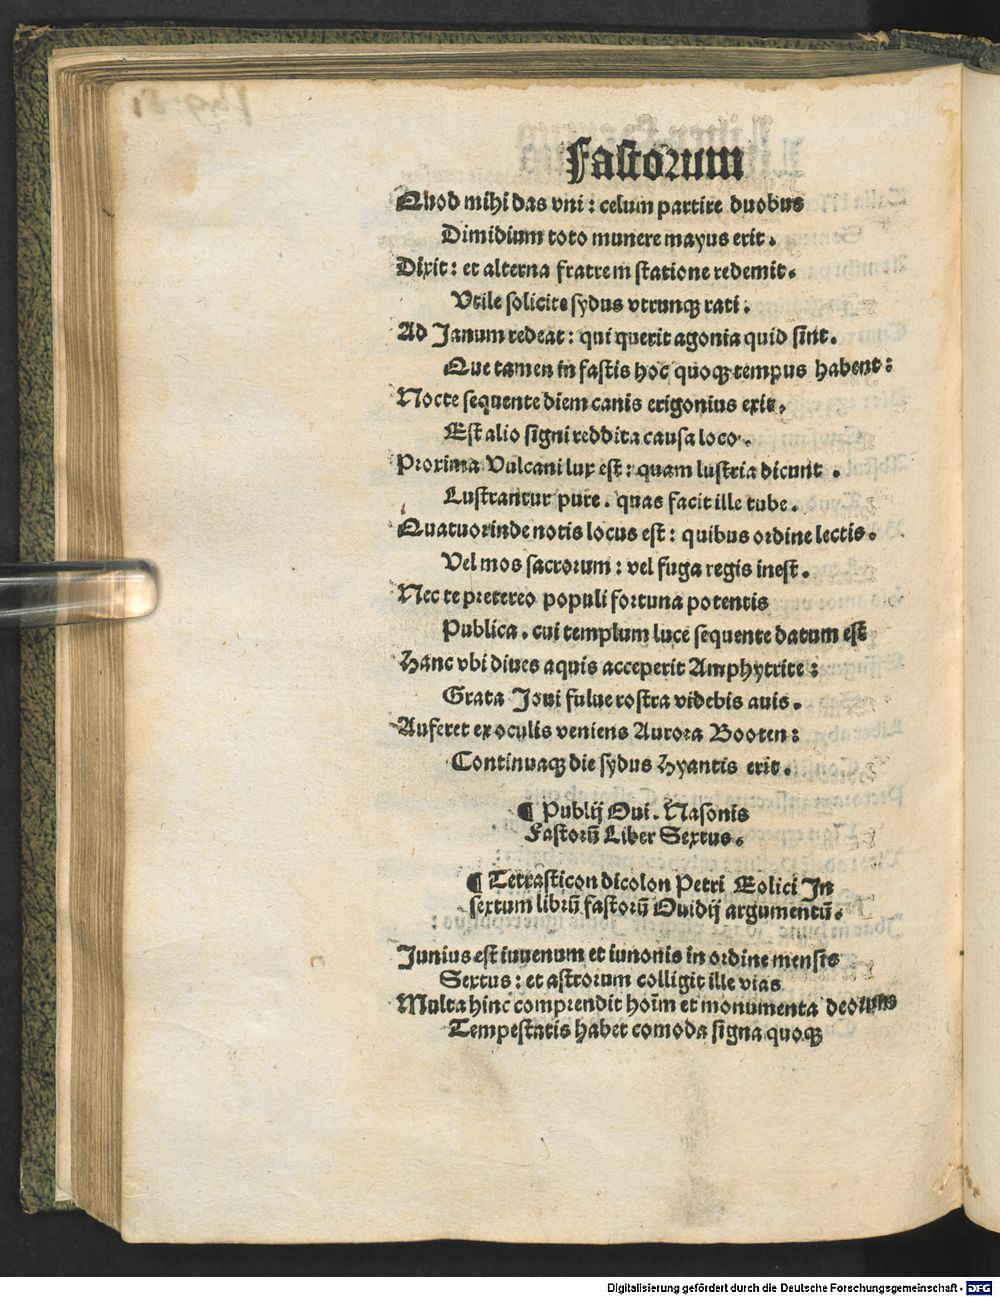 Fastorum
Quod mihi das vni : celum partire duobus
Dimidium toto munere mayus erit.
Dixit : et alterna fratrem statione redemit.
Vtile solicite sydus vtrunqꝫ rati.
Ad Janum redeat : qui querit agonia quid sint.
Que tamen in fastis hoc quoqꝫ tempus habent :
Nocte sequente diem canis erigonius exit.
Est alio signi reddita causa loco.
Proxima Vulcani lux est : quam lustria dicunt .
Lustrantur pure . quas facit ille tube .
Quatuor inde notis locus est : quibus ordine lectis.
Vel mos sacrorum : vel fuga regis inest .
Nec te pretereo populi fortuna potentis
Publica . cui templum luce sequente datum est
Hanc vbi diues aquis acceperit Amphytrite :
Grata Joui fulue rostra videbis auis .
Auferet ex oculis veniens Aurora Booten :
Continuaqꝫ die sydus Hyantis erit .
¶ Publij Oui. Nasonis
Fastorū Liber Sextus.
¶ Tetrasticon dicolon Petri Eolici In
sextum librū fastorū Ouidij argumentū.
Junius est iuuenum et iunonis in ordine mensis
Sextus : et astrorum colligit ille vias
Multa hinc comprendit hoīm et monumenta deorum
Tempestatis habet comoda signa quoqꝫ
Digitalisierung gefördert durch die Deutsche Forschungsgemeinschaft - DFG